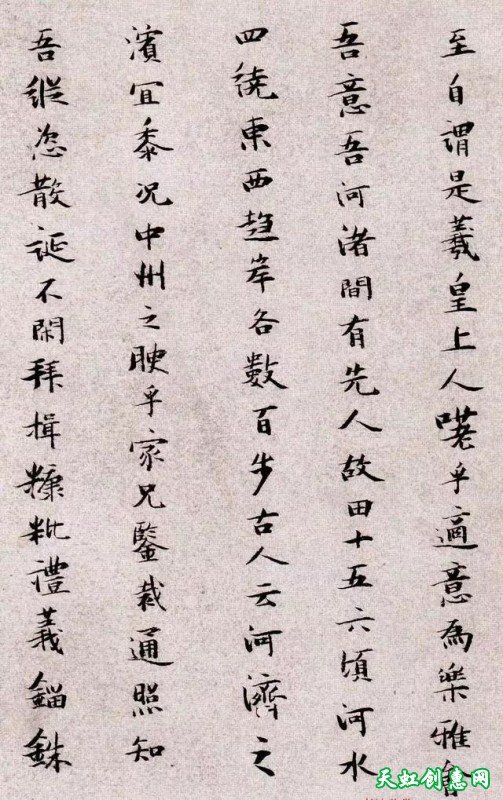 至自謂是羲皇上人嗟乎適意為樂雅會
吾意吾河渚間有先人故田十五六頃河水
四繞東西趨岸各數百步古人云河濟之
濱宜黍况中州之腴乎家兄鑒裁通照知
吾縱恣散誕不閑拜揖糠粃禮義錙銖
天虹创意网